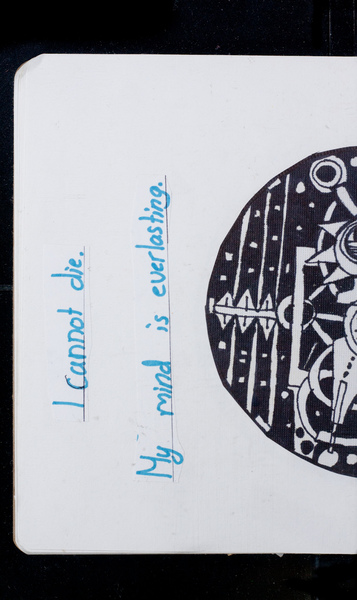 I cannot die.
My mind is everlasting.